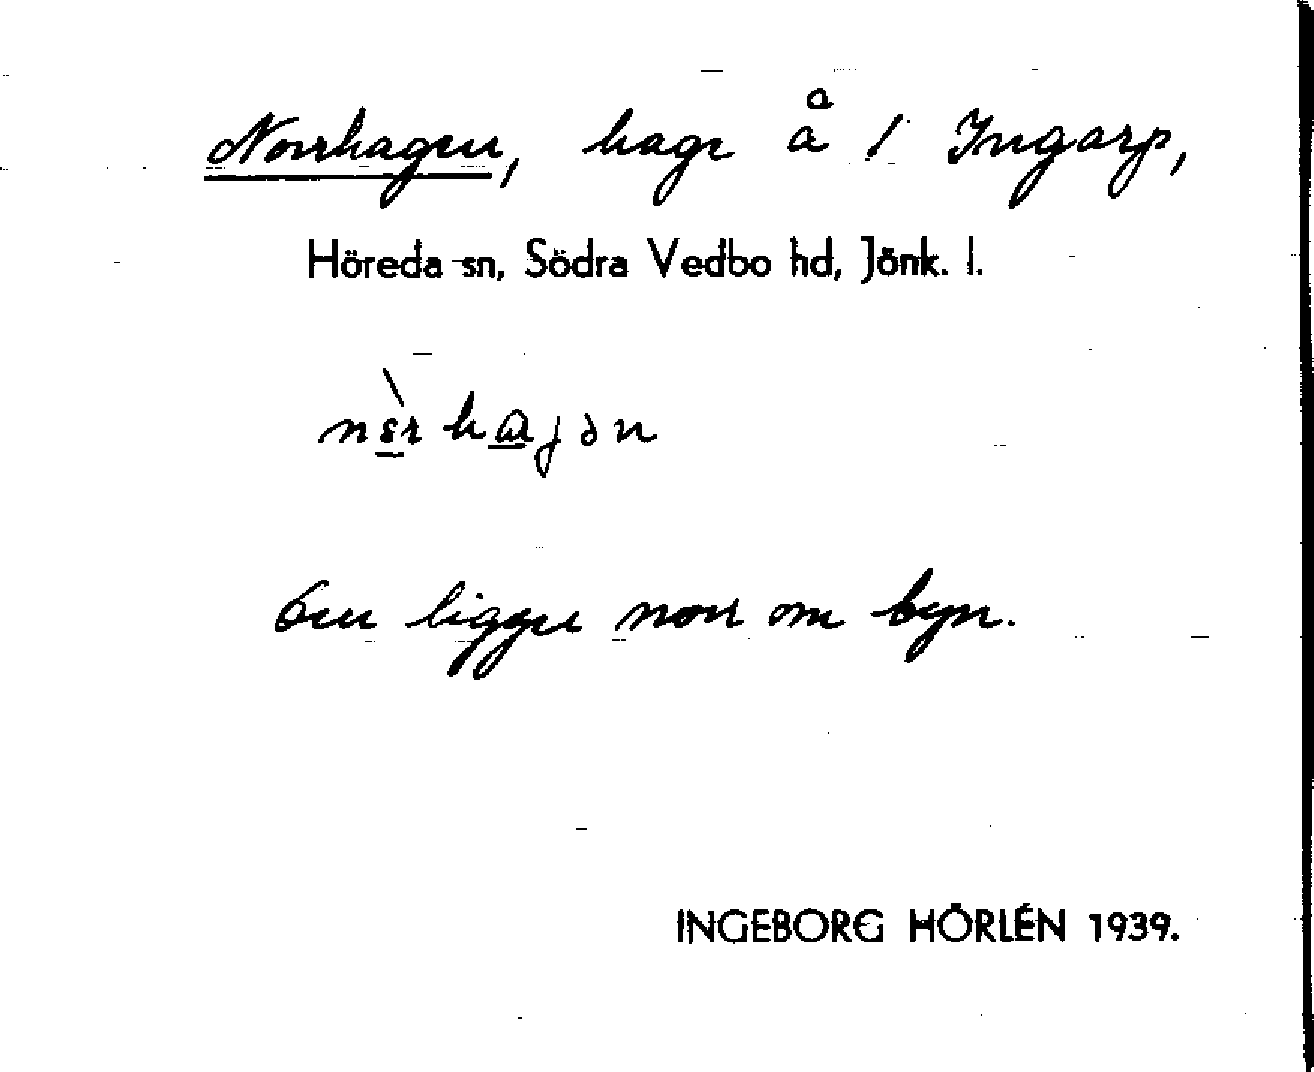 Norrhagen, hage å 1 Ingarp,
Höreda sn, Södra Vedbo hd, Jönk. l.
Den ligger norr om byn.
INGEBORG HÖRLÉN 1939.